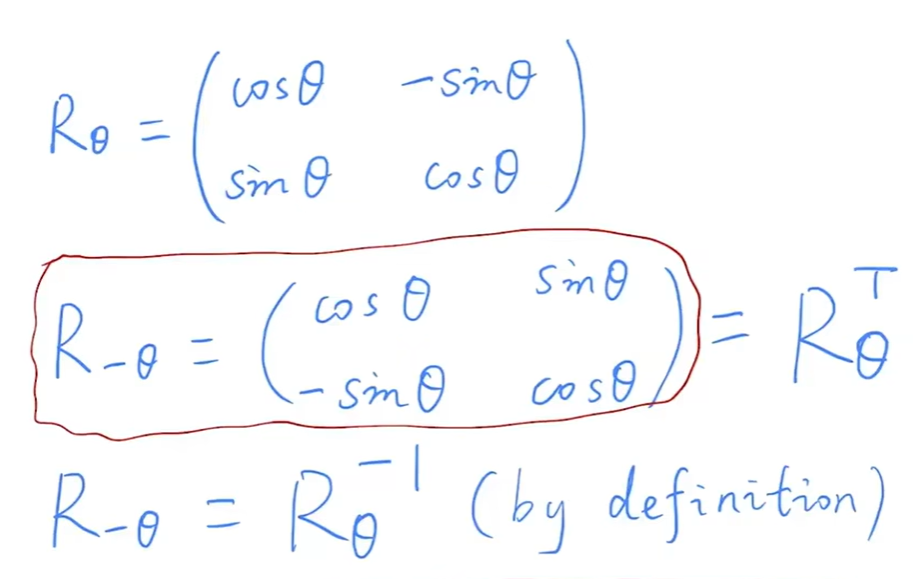 R_θ = ( cosθ -sinθ
sinθ cosθ )
R_-θ = ( cosθ sinθ
-sinθ cosθ ) = R_θ^T
R_-θ = R_θ^-1 (by definition)